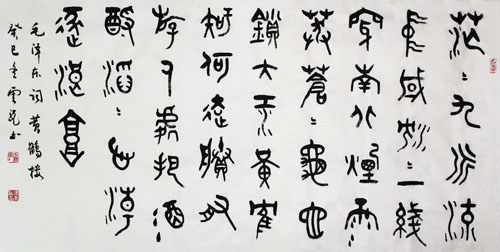 茫〻九派流
中國沉〻一綫
穿南北煙雨
莽蒼〻龜蛇
鎖大江黃鶴
知何去賸有
游人處把酒
酹滔〻心潮
逐浪高
毛澤东詞黃鶴樓
癸巳冬雲書